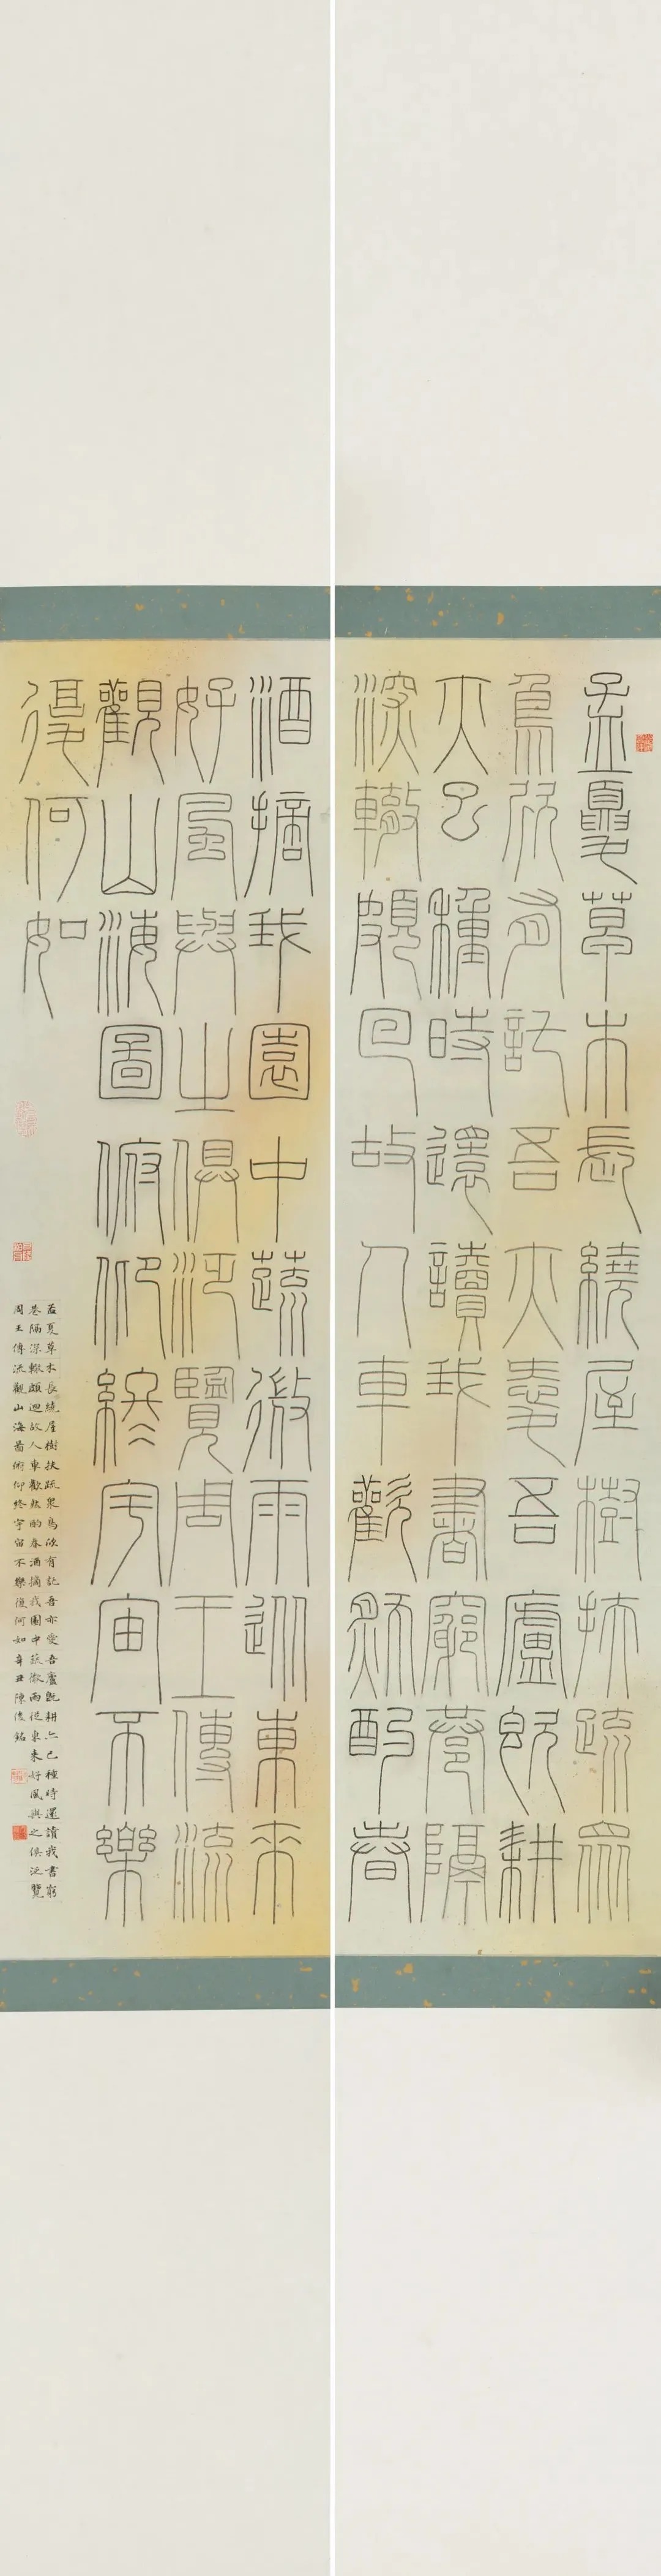 孟夏草木長繞屋樹扶疏眾
鳥欣有託吾亦愛吾廬既耕
亦已種時還讀我書窮巷隔
深轍頗回故人車歡然酌春
酒摘我園中蔬微雨從東來
好風與之俱泛覽周王傳流
觀山海圖俯仰終宇宙不樂
復何如
孟夏草木長繞屋樹扶疏眾鳥欣有託吾亦愛吾廬既耕亦已種時還讀我書窮
巷隔深轍頗迴故人車歡然酌春酒摘我園中蔬微雨從東來好風與之俱泛覽
周王傳流觀山海圖俯仰終宇宙不樂復何如辛丑陳俊銘